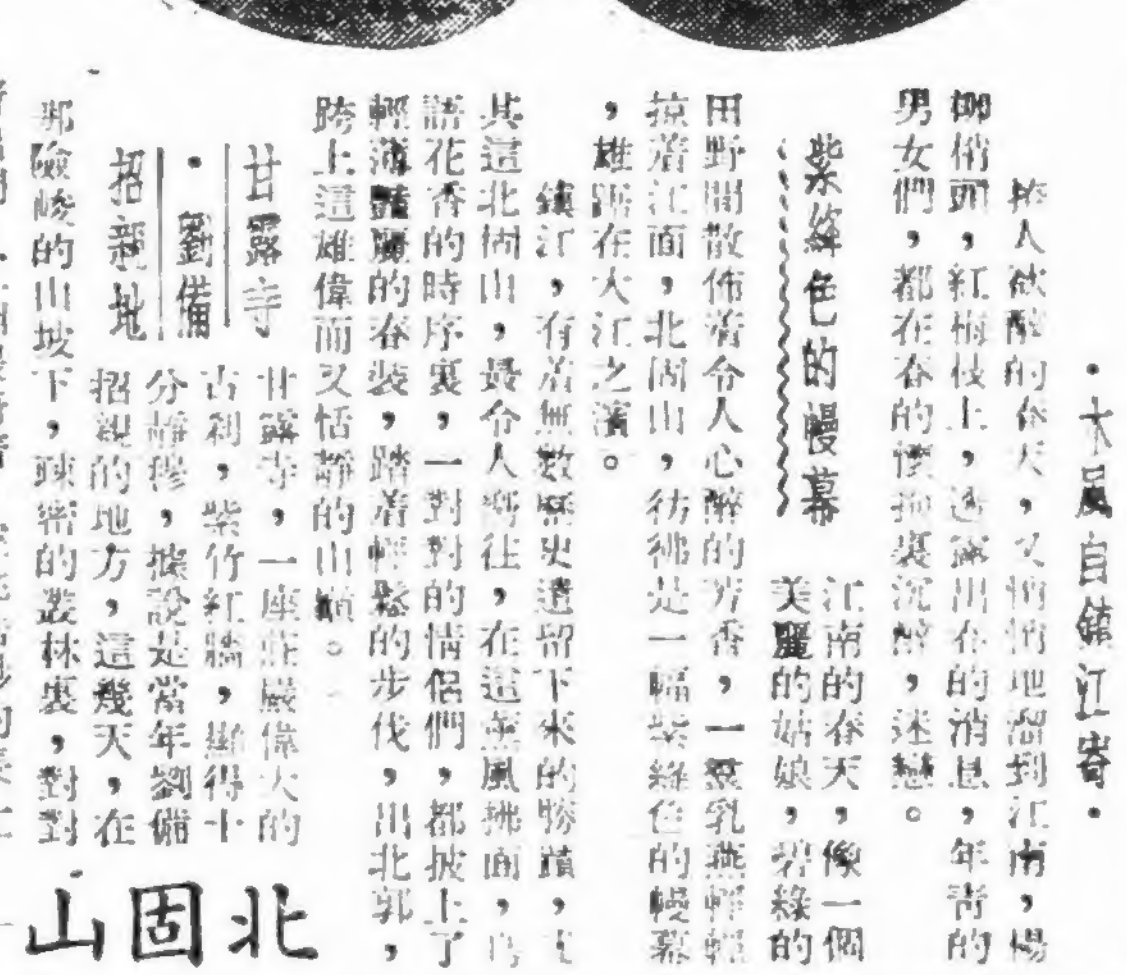 ·大風自鎮江寄·
撩人欲醉的春天，又悄悄地溜到江南，楊
柳俏頭，紅梅枝上，透露出春的消息，年青的
男女們，都在春的懷抱裏沉醉，迷戀。
紫絳色的幔幕
江南的春天，像一個
美麗的姑娘，碧綠的
田野間散佈着令人心醉的芳香，一羣乳燕輕輕
掠着江面，北固山，彷彿是一幅紫絳色的幔幕
，雄踞在大江之濱。
鎮江，有着無數歷史遺留下來的勝蹟，尤
其這北固山，最令人嚮往，在這薰風拂面，鳥
語花香的時序裏，一對對的情侶們，都披上了
輕薄豔麗的春裝，踏着輕鬆的步伐，出北郭，
跨上這雄偉而又恬靜的山巔。
甘露寺
·劉備
招親地
甘露寺，一座莊嚴偉大的
古刹，紫竹紅牆，顯得十
分靜穆，據說是當年劉備
招親的地方，這幾天，在
那險峻的山坡下，疎密的叢林裏，對對
北固山